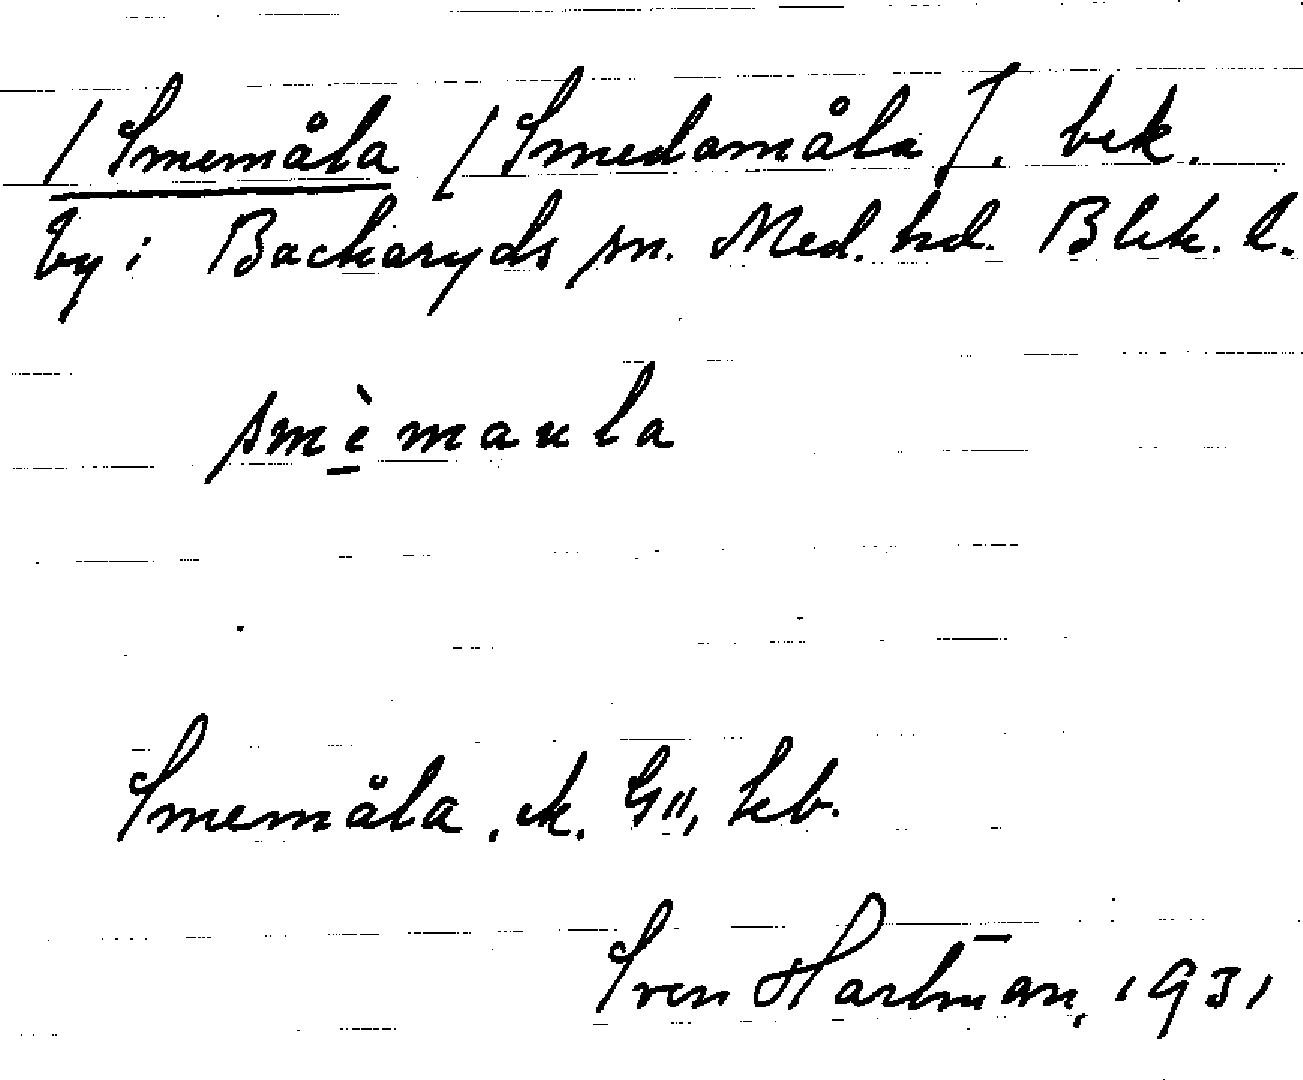 /Smemåla [Smedamåla]. bek.
by i Backaryds sn. Med. hd. Blek. l.
smèmaula
Smemåla, ek. G11, kb.
Sven Hartman, 1931